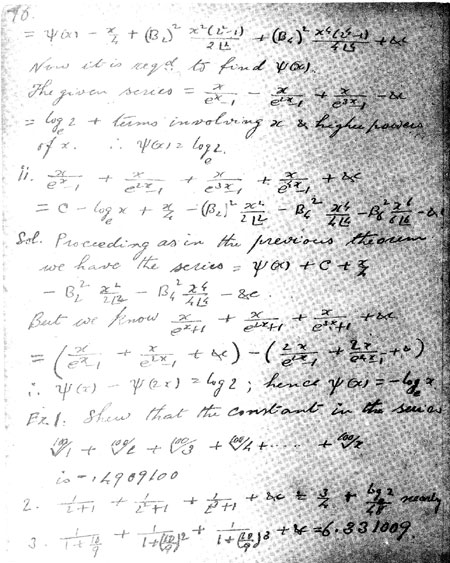 76.
= ψ(x) - x/4 + (B₂)² x²(2²-1)/2⌊2 + (B₄)² x⁴(2⁴-1)/4⌊4 + &c
Now it is reqd. to find ψ(x).
The given series = x/(eˣ-1) - x/(e²ˣ-1) + x/(e³ˣ-1) - &c
= logₑ2 + terms involving x & higher powers
of x. ∴ ψ(x) = logₑ2.
ii. x/(eˣ-1) + x/(e²ˣ-1) + x/(e³ˣ-1) + x/(e⁴ˣ-1) + &c
= C - logₑx + x/4 - (B₂)² x²/2⌊2 - B₄² x⁴/4⌊4 - B₆² x⁶/6⌊6 - &c
Sol. Proceeding as in the previous theorem
we have the series = ψ(x) + C + x/4
- B₂² x²/2⌊2 - B₄² x⁴/4⌊4 - &c.
But we know x/(eˣ+1) + x/(e²ˣ+1) + x/(e³ˣ+1) + &c
= (x/(eˣ-1) + x/(e²ˣ-1) + &c) - (2x/(e²ˣ-1) + 2x/(e⁴ˣ-1) + &c)
∴ ψ(x) - ψ(2x) = log 2 ; hence ψ(x) = -logₑx
Ex. 1. Shew that the constant in the series
¹⁰⁰√1 + ¹⁰⁰√2 + ¹⁰⁰√3 + ¹⁰⁰√4 + ..... + ¹⁰⁰√x
is -.4909100
2. 1/(2+1) + 1/(2²+1) + 1/(2³+1) + &c = 3/4 + log 2/48 nearly
3. 1/(1+10/9) + 1/(1+(10/9)²) + 1/(1+(10/9)³) + &c = 6.331009.